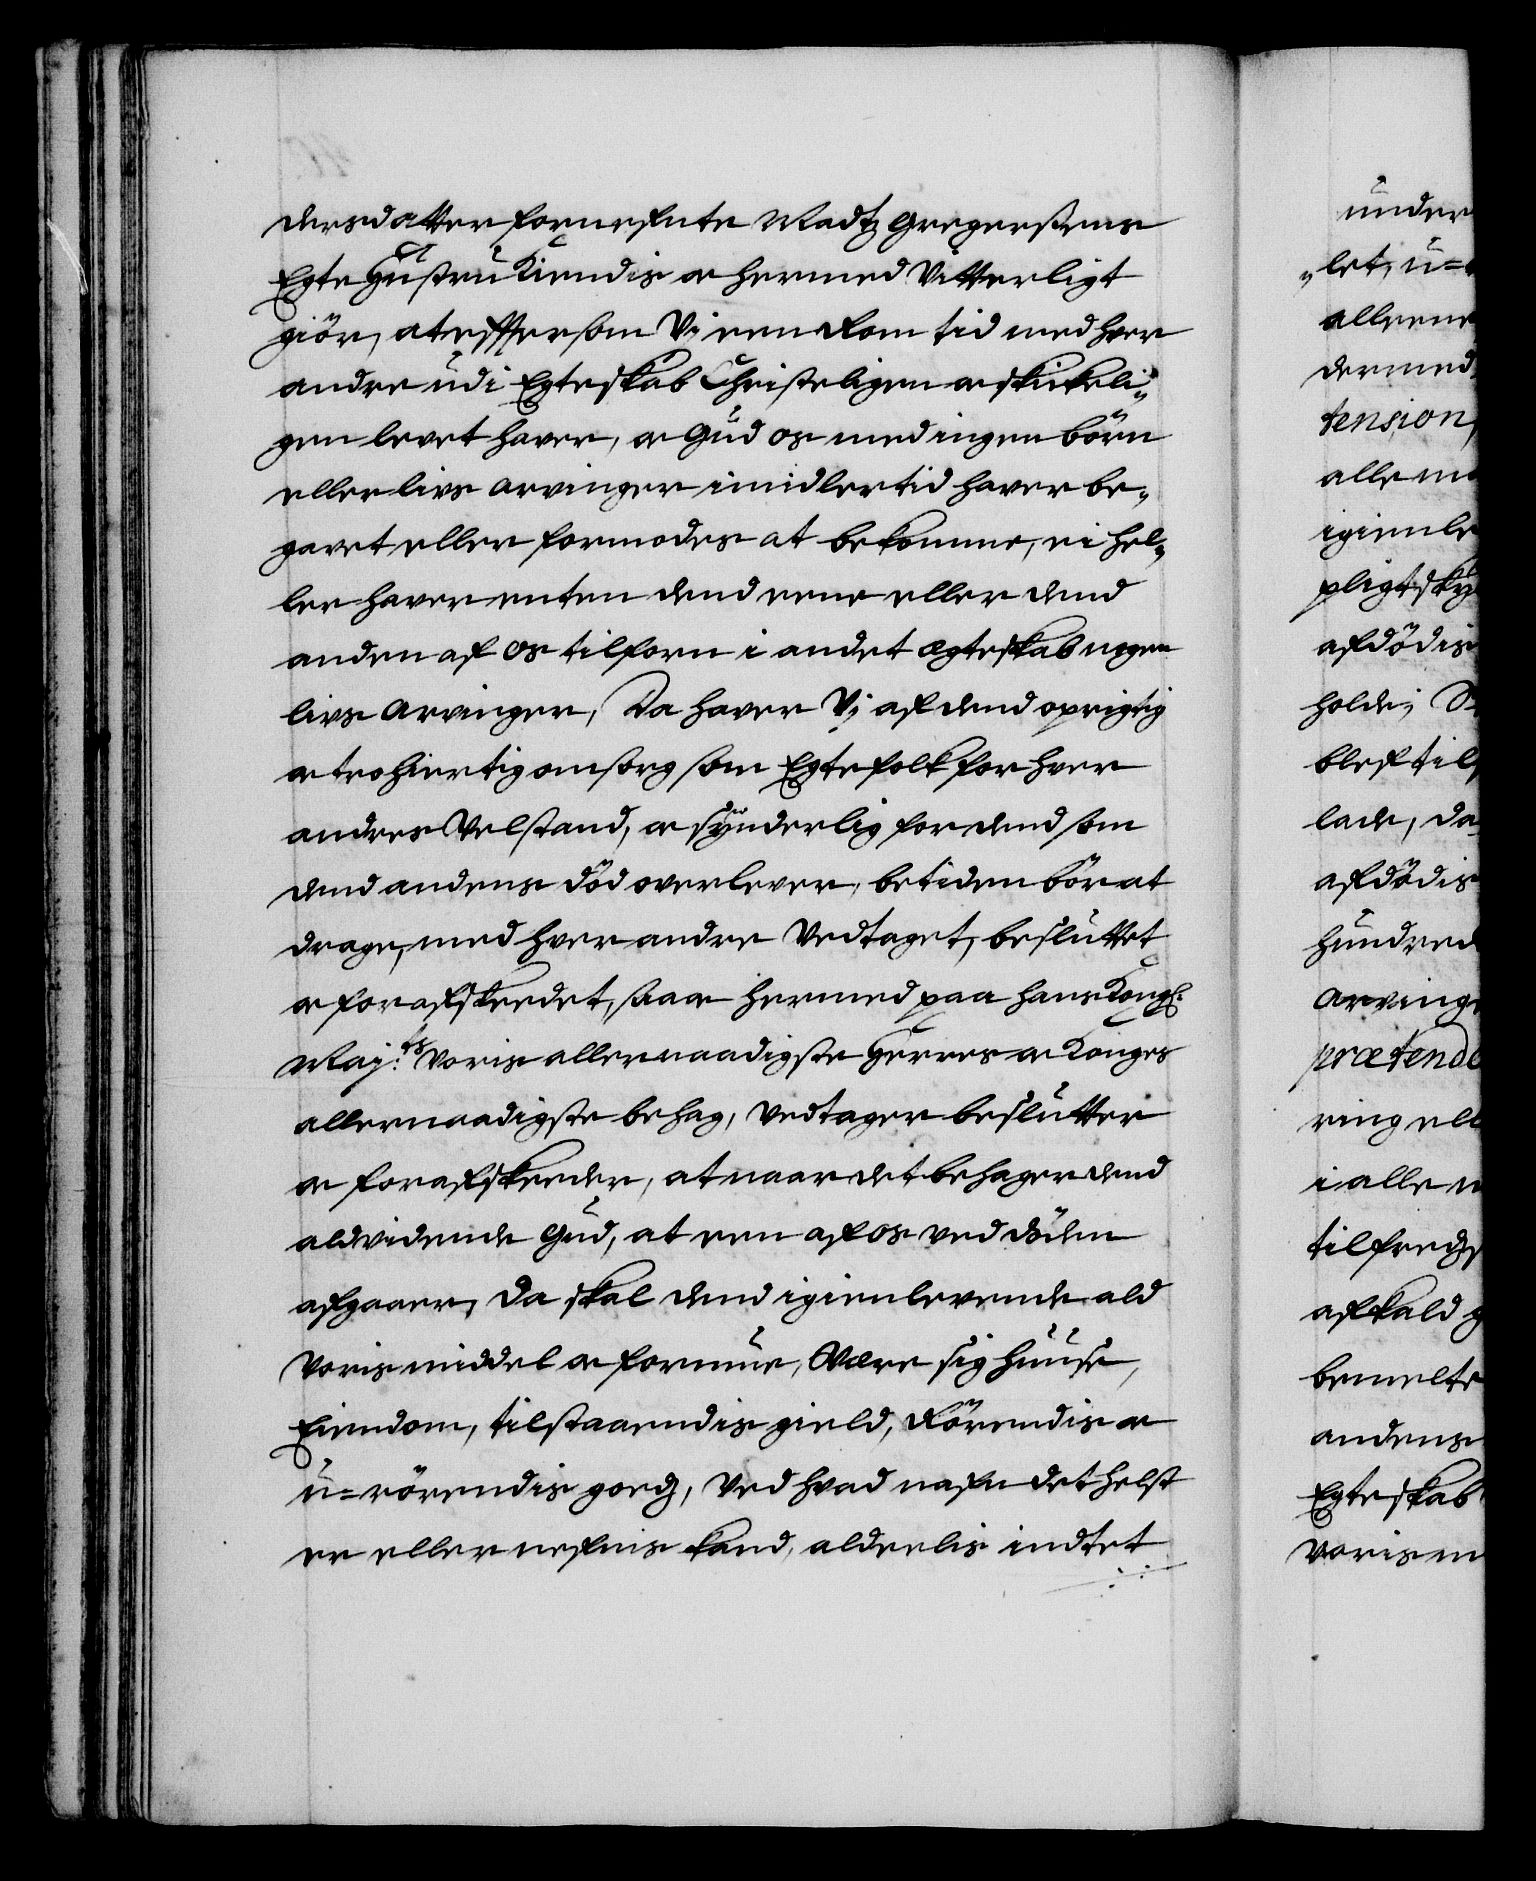 dersdatter fornefnte Madtz Gregersens
Egte Hustru Kiendis og hermed Vitterligt
giör, at eftersom Vj een Rom tid med hver
andre udi Egteskab Christeligen og skickeli¬
gen levet haver, og Gud os med ingen börn
eller livs arvinger imidlertid haver be¬
gavet eller formodes at bekomme, ei hel¬
ler haver enten dend eene eller dend
anden af os tilforn i andet ægteskab nogen
livs Arvinger, Da haver Vj af dend oprigtig
og trohiertig omsorg som Egtefolk for hver
andres Velstand, og synderlig for dend som
dend andens död overlever, betiden bör at
drage, med hver andre Vedtaget, besluttet
og forafskeedet, saa og hermed paa hans Kongl:
Maj:ts voris allernaadigste Herres og Konges
allernaadigste behag, Vedtager beslutter
og forafskeeder, at naar det behager dend
aldvidende Gud, at een af os ved döden
afgaaer, Da skal dend igienlevende ald
voris middel og formue, Være sig huuse,
Eiendom, tilstaaendis gield, Rörendis og
u=rörendis goedz, Ved hvad nafn det helst
er eller nefnis kand, aldeelis indtet
under
let, u=
alleene
dermed
tension,
alle m
igienle
pligt sky
afdödis
holde;
blef til
lade, da
afdödis
hundred
Arvinge
prætende
ring ell
i alle
tilfreds
afkald
bemelte
andens
Egteskab
voris m